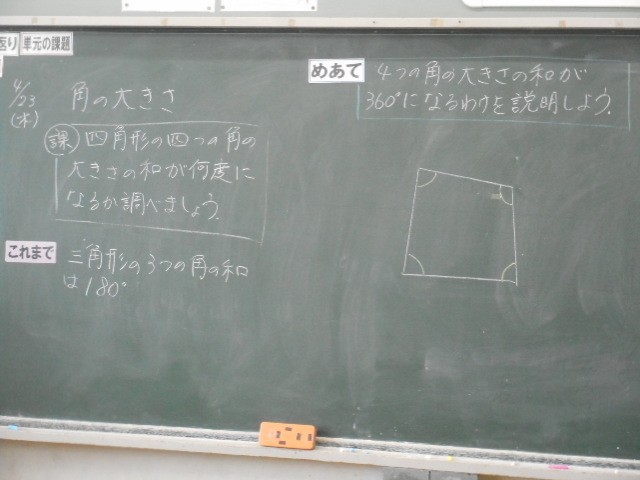 返り
単元の課題
4/23
(木)
角の大きさ
課 四角形の四つの角の
大きさの和が何度に
なるか調べましょう。
これまで
三角形の3つの角の和
は180°
めあて
4つの角の大きさの和が
360°になるわけを説明しよう。